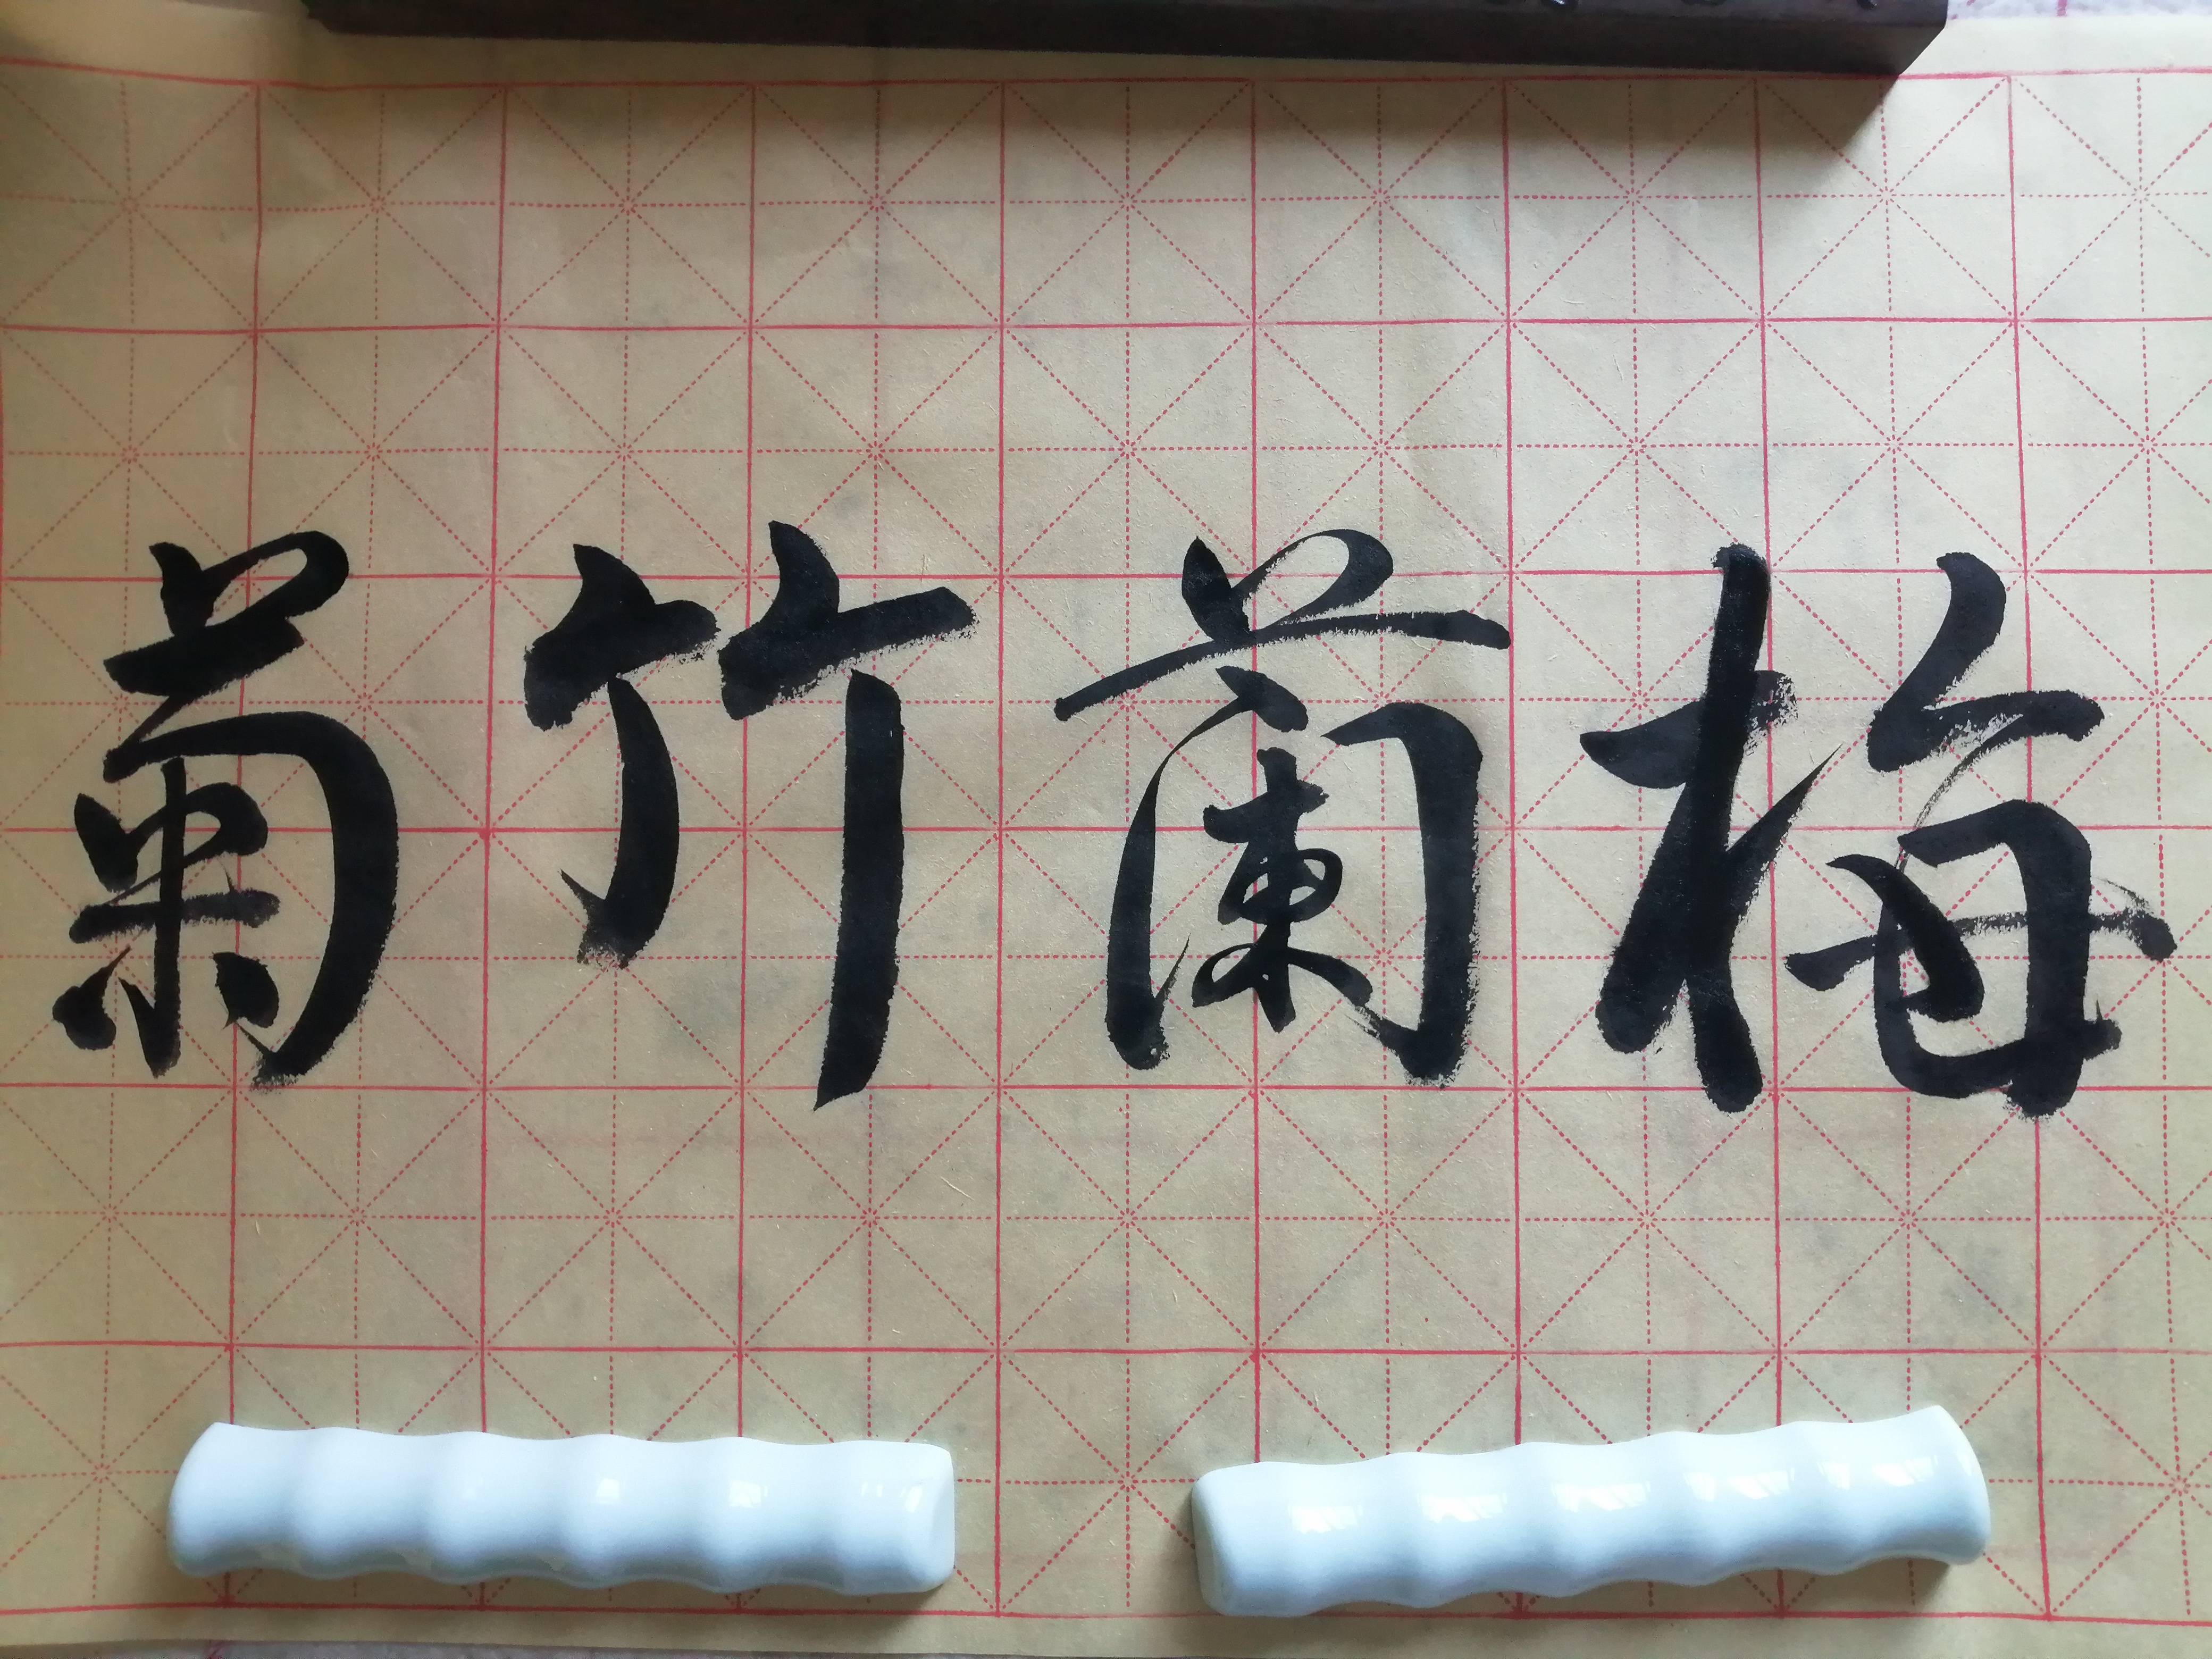 梅蘭竹菊